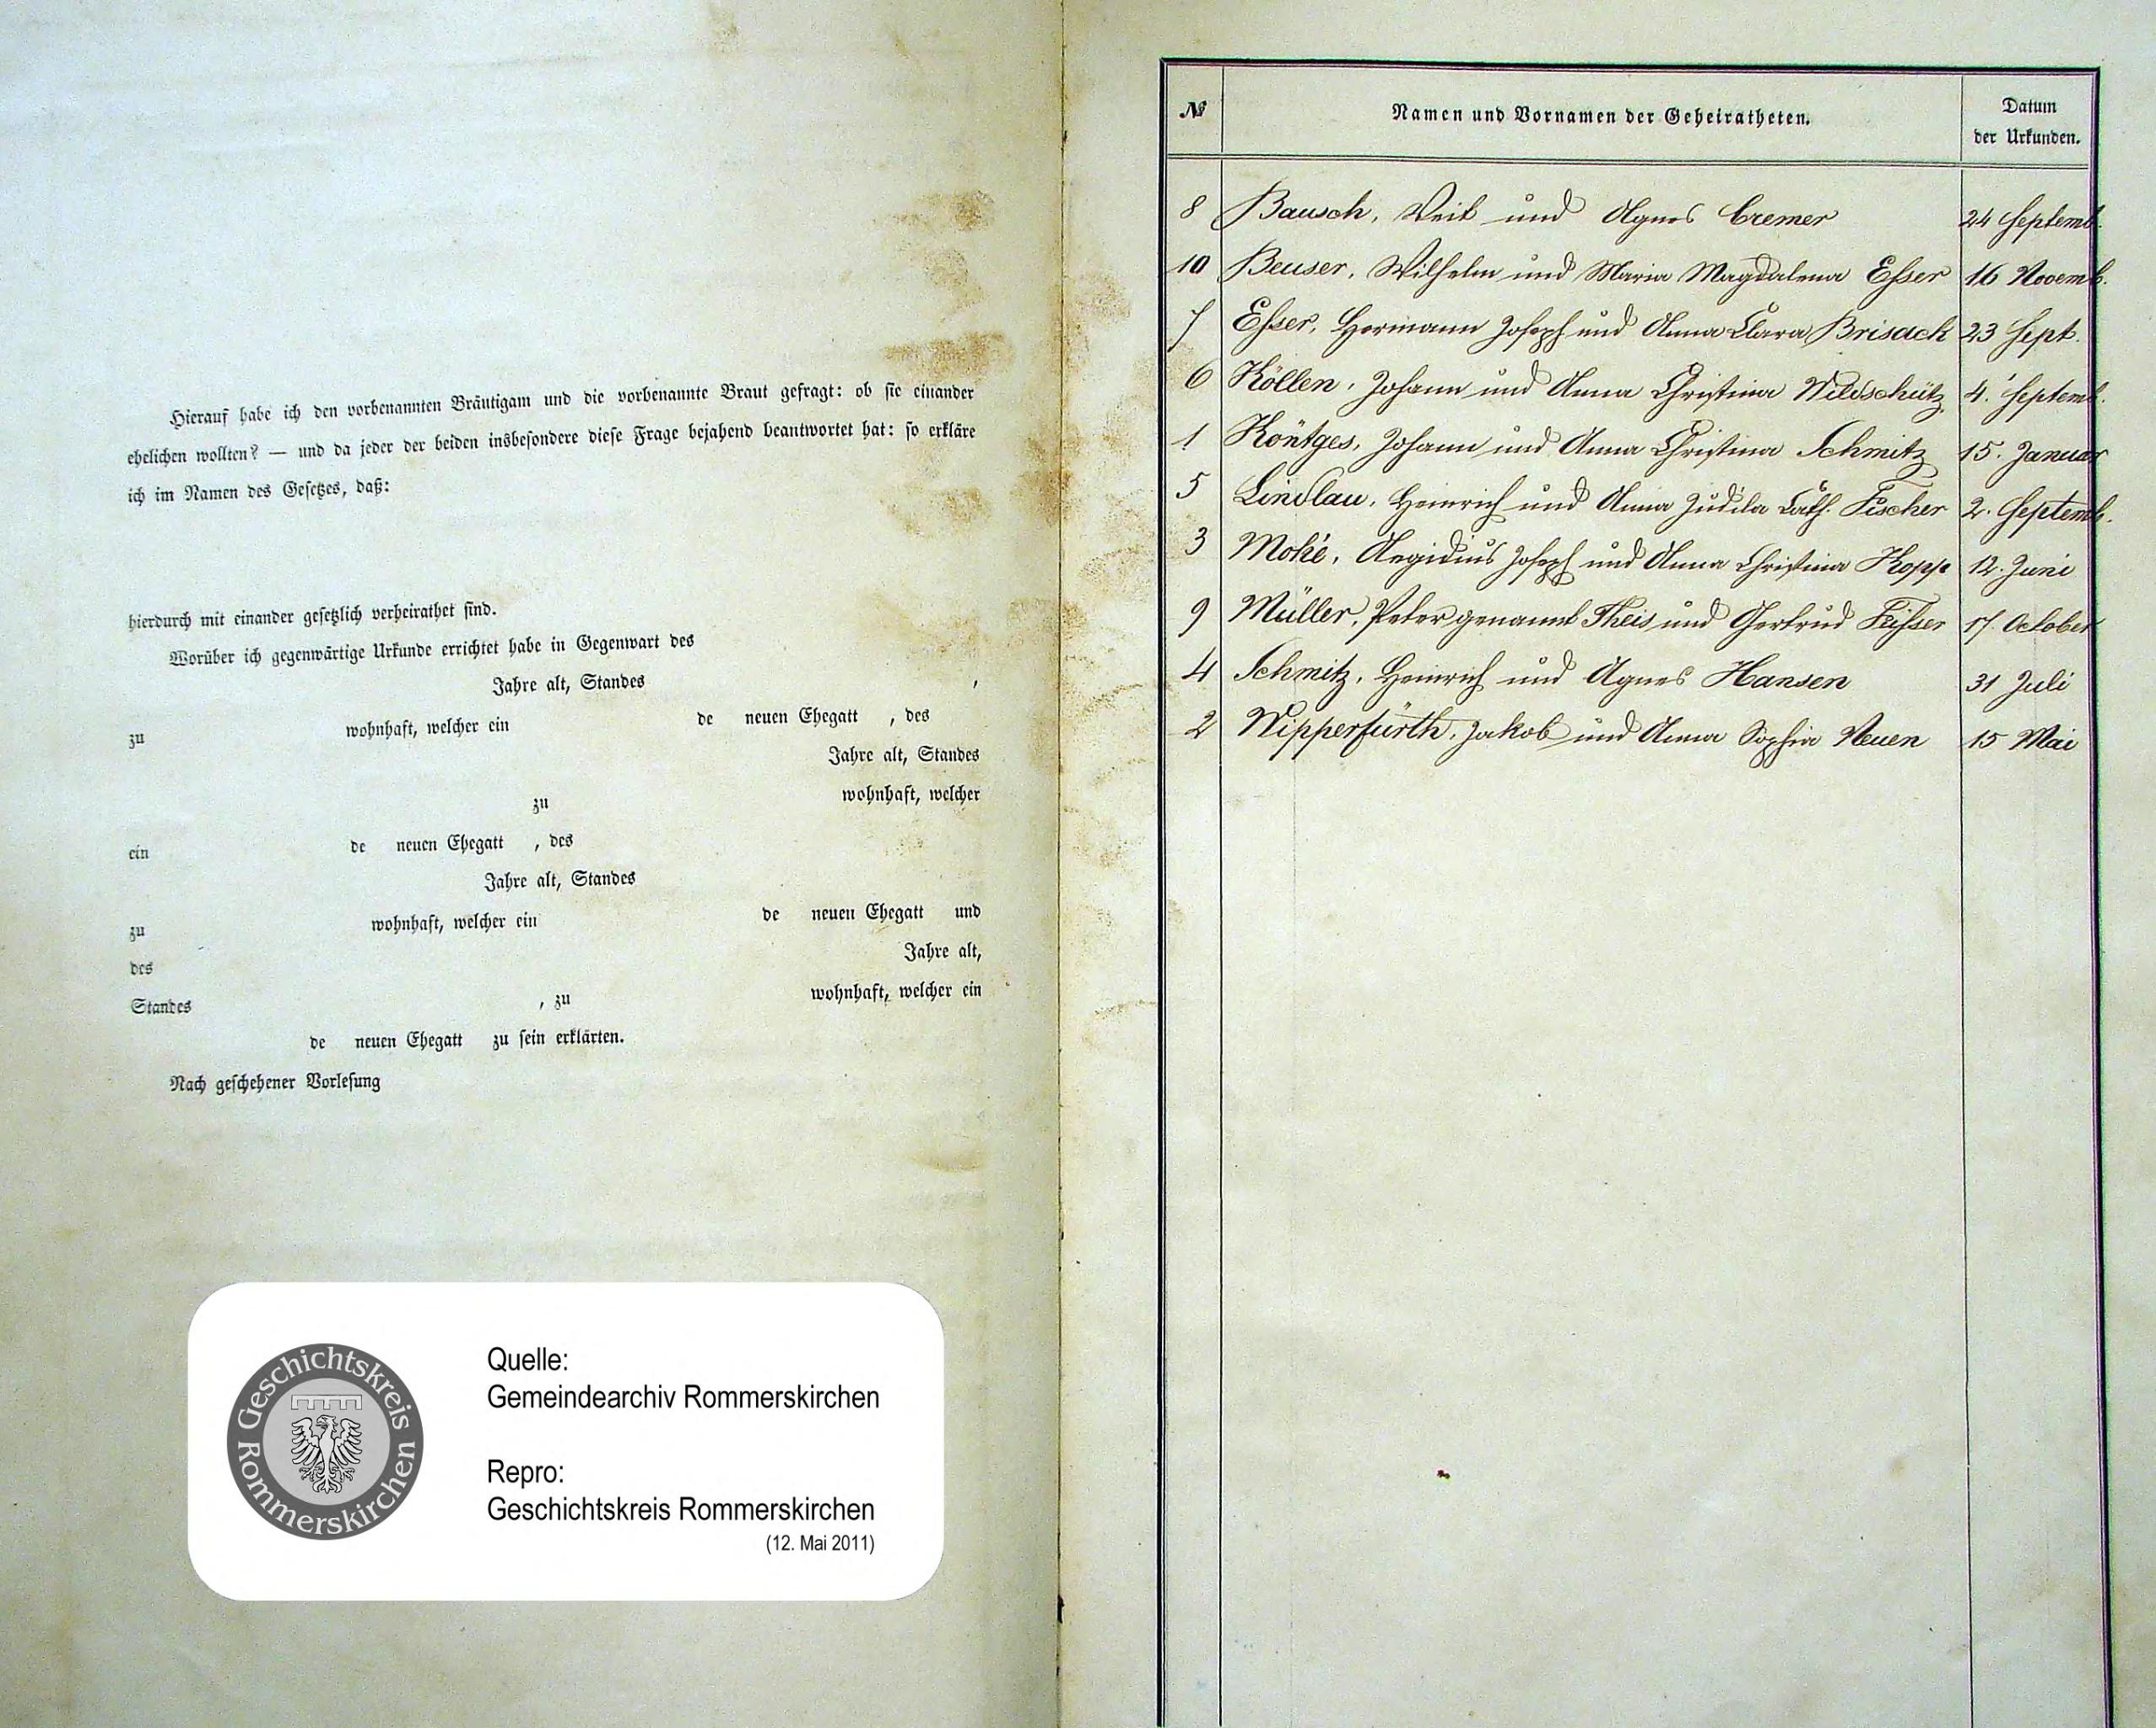 Hierauf habe ich den vorbenannten Bräutigam und die vorbenannte Braut gefragt: ob sie einander
ehelichen wollten? — und da jeder der beiden insbesondere diese Frage bejahend beantwortet hat: so erkläre
ich im Namen des Gesetzes, daß:
hierdurch mit einander gesetzlich verheirathet sind.
Worüber ich gegenwärtige Urkunde errichtet habe in Gegenwart des
Jahre alt, Standes ,
zu wohnhaft, welcher ein de neuen Ehegatt , des
Jahre alt, Standes
zu wohnhaft, welcher
ein de neuen Ehegatt , des
Jahre alt, Standes
zu wohnhaft, welcher ein de neuen Ehegatt und
des Jahre alt,
Standes , zu wohnhaft, welcher ein
de neuen Ehegatt zu sein erklärten.
Nach geschehener Vorlesung
Geschichtskreis Rommerskirchen
Quelle:
Gemeindearchiv Rommerskirchen
Repro:
Geschichtskreis Rommerskirchen
(12. Mai 2011)
№ Namen und Vornamen der Geheiratheten. Datum
der Urkunden.
8 Bausch, Veit und Agnes Cremer 24 Septemb.
10 Beuser, Wilhelm und Maria Magdalena Esser 16 Novemb.
7 Esser, Hermann Joseph und Anna Clara Brisack 23 Sept.
6 Köllen, Johann und Anna Christina Wildschütz 4. Septemb.
1 Köntges, Johann und Anna Christina Schmitz 15. Januar
5 Lindlau, Heinrich und Anna Cath. Fischer 2. Septemb.
3 Mohé, Aegidius Joseph und Anna Christina Kopp 12. Juni
9 Müller, Peter genannt Theis und Gertrud 17. October
4 Schmitz, Heinrich und Agnes Hansen 31 Juli
2 Wipperfürth, Jakob und Anna Sophia Neuen 15 Mai